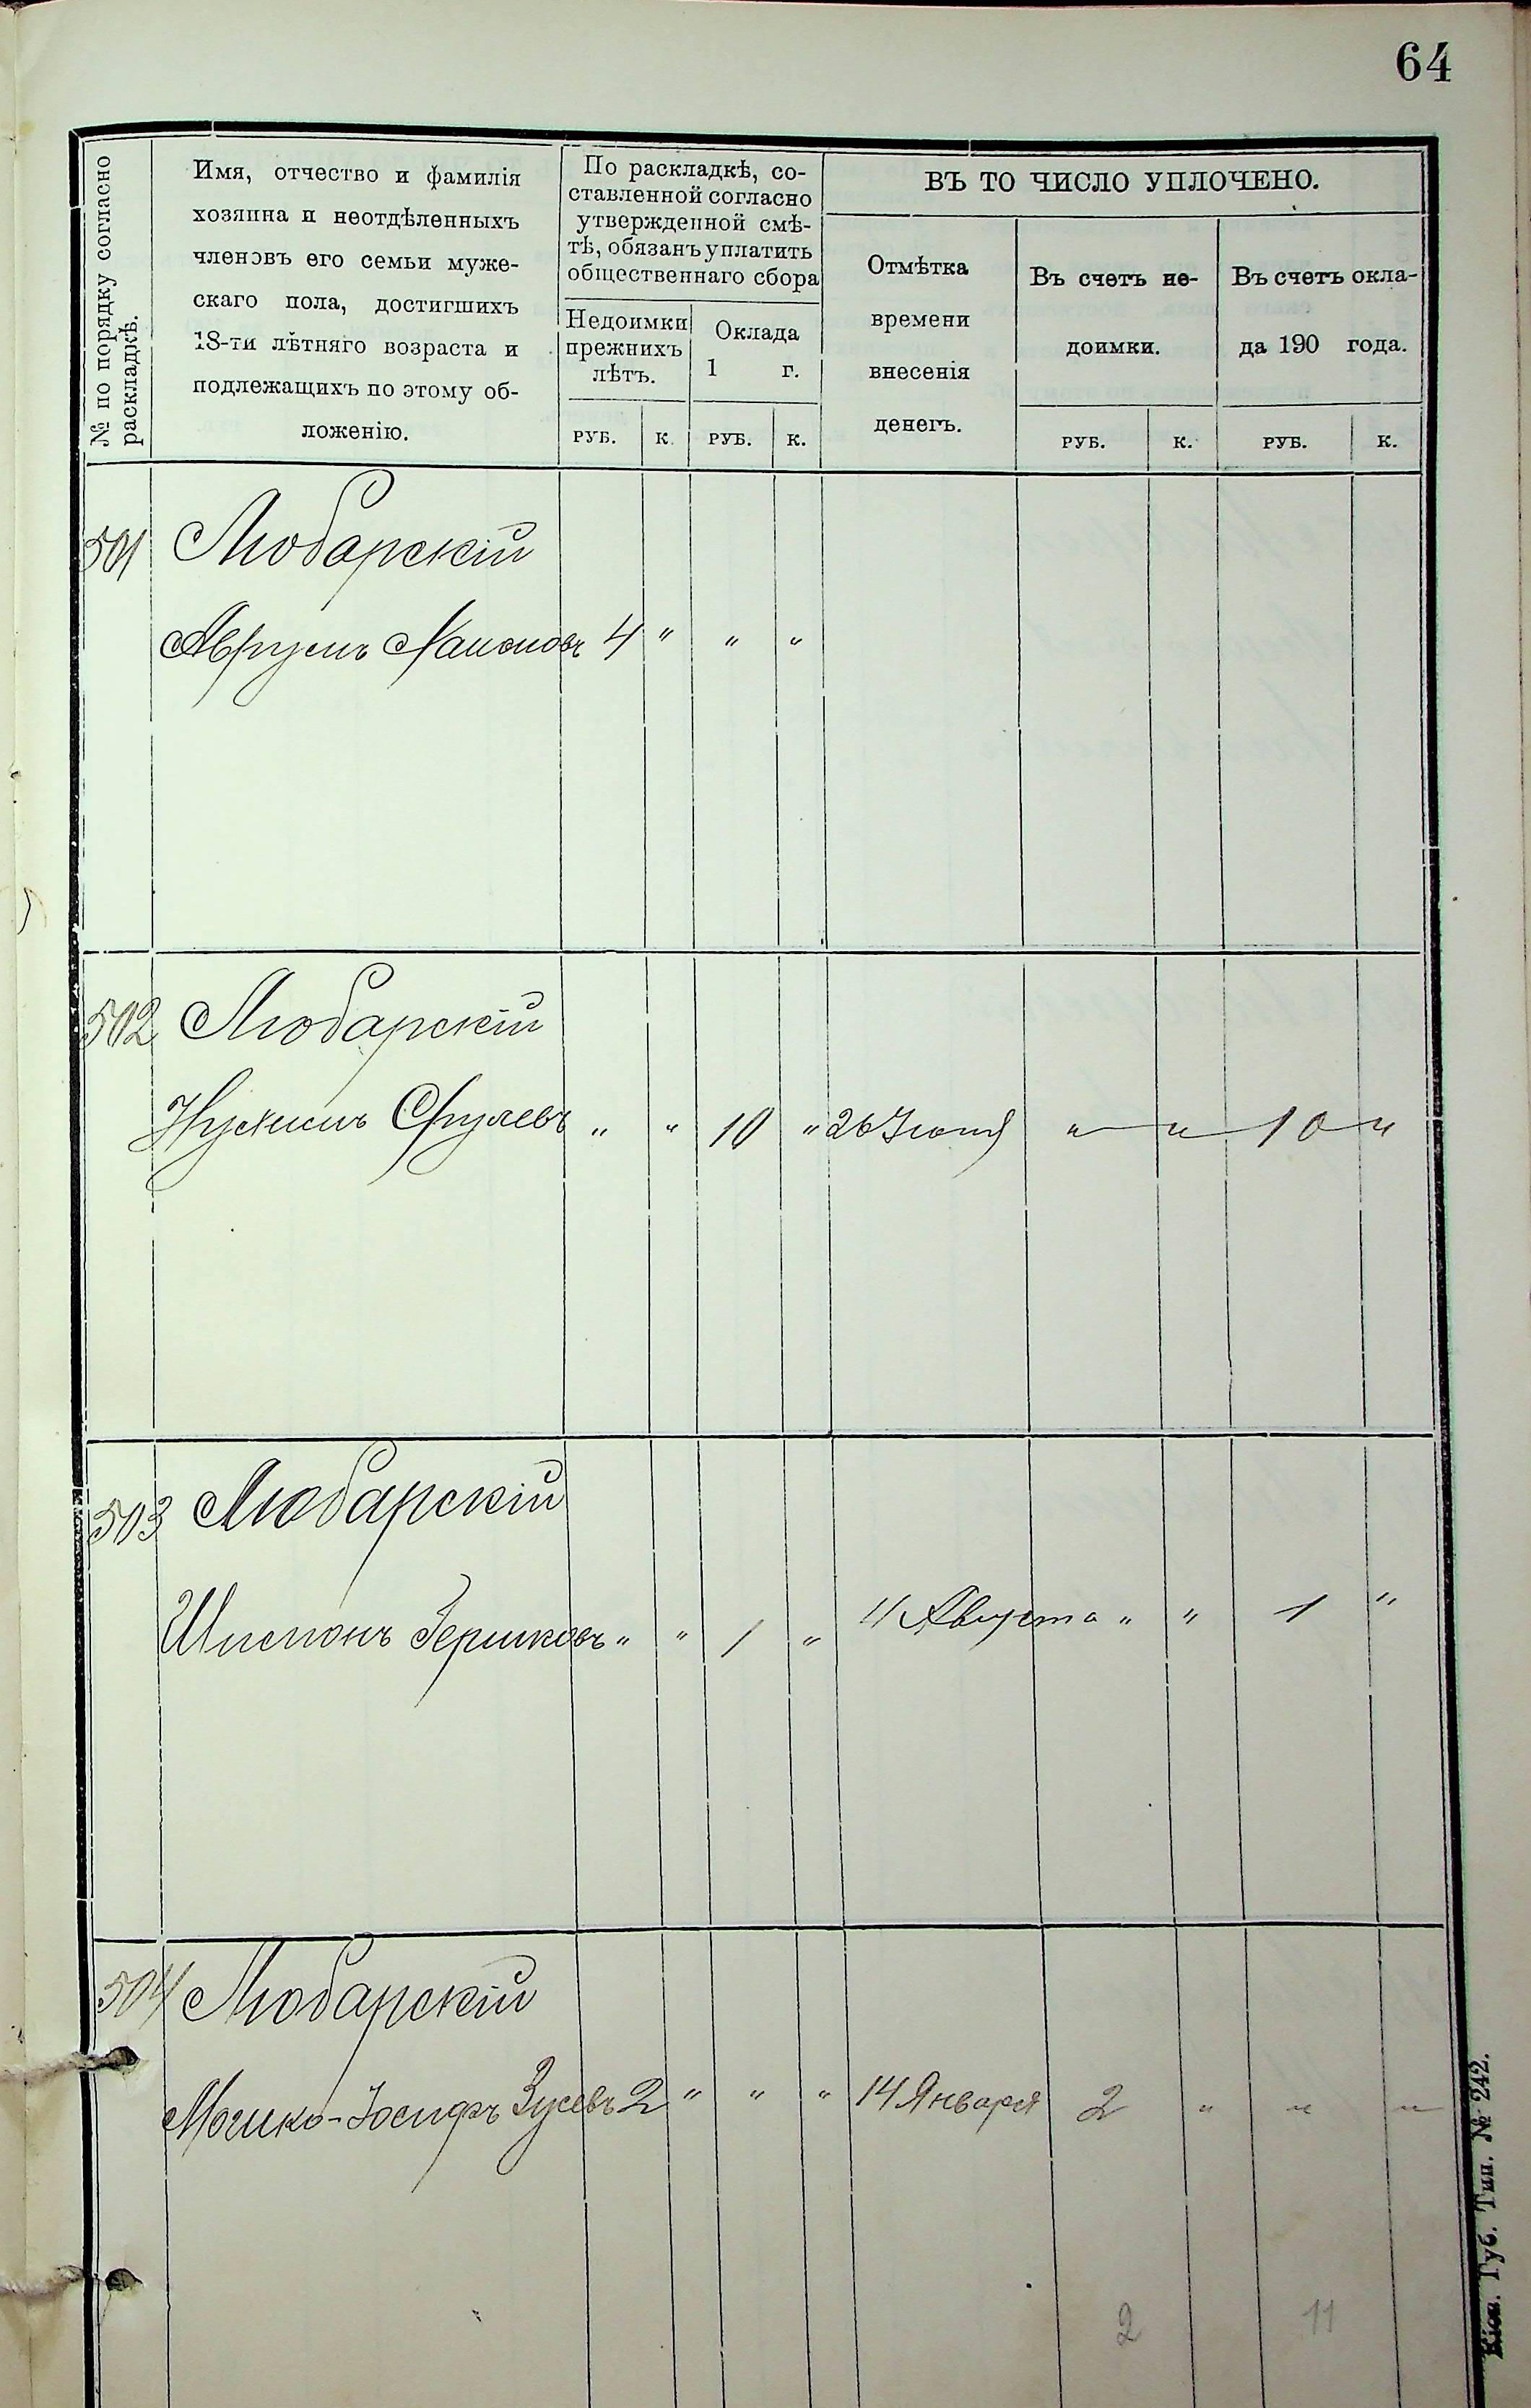 64
№ по порядку согласно
раскладкѣ.
Имя, отчество и фамилія
хозяина и неотдѣленныхъ
членовъ его семьи муже-
скаго пола, достигшихъ
18-ти лѣтняго возраста и
подлежащихъ по этому об-
ложенію.
По раскладкѣ, со-
ставленной согласно
утвержденной смѣ-
тѣ, обязанъ уплатить
общественнаго сбора
Недоимки
прежнихъ
лѣтъ.
Оклада
1 г.
ВЪ ТО ЧИСЛО УПЛОЧЕНО.
Отмѣтка
времени
внесенія
денегъ.
Въ счетъ не-
доимки.
Въ счетъ окла-
да 190 года.
РУБ. К. РУБ. К. РУБ. К. РУБ. К.
501 Любарскій
Аврумъ 4 " " "
502 Любарскій
Нухимъ Сруловъ " " 10 " 26 Іюня " " 10 "
503 Любарскій
Шимонъ Гершковъ " " 1 " 11 Августа " " 1 "
504 Любарскій
Мошко-Іосифъ Зусевъ 2 " " " 14 Января 2 " " "
2 11
Кіев. Губ. Тип. № 242.